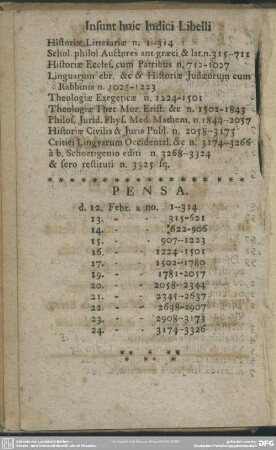 Insunt huic Indici Libelli
Historiæ Litterariæ n. 1-314
Schol. philol Auctores ant græci & lat. n. 315-711
Historiæ Eccles. cum Patribus n. 712-1027
Linguarum ebr. &c & Historiæ Judæorum cum
Rabbinis n. 1028-1223
Theologiæ Exegeticæ n. 1224-1501
Theologiæ Thet Mor. Past. &c n. 1502-1843
Philos. Jurid. Phys. Med. Mathem. n. 1844-2057
Historiæ Civilis & Juris Publ. n. 2058-3173
Critici Lingvarum Occidental. &c n. 3174-3266
à b. Schoettgenio editi n. 3268-3324
& sero restituti n. 3325 sq.
PENSA.
d. 12. Febr. a no. 1-314
13. - - 315-621
14. - - 622-906
15. - - 907-1223
16. - - 1224-1501
17. - - 1502-1780
19. - - 1781-2057
20. - - 2058-2344
21. - - 2345-2637
22. - - 2638-2907
23. - - 2908-3173
24. - - 3174-3326